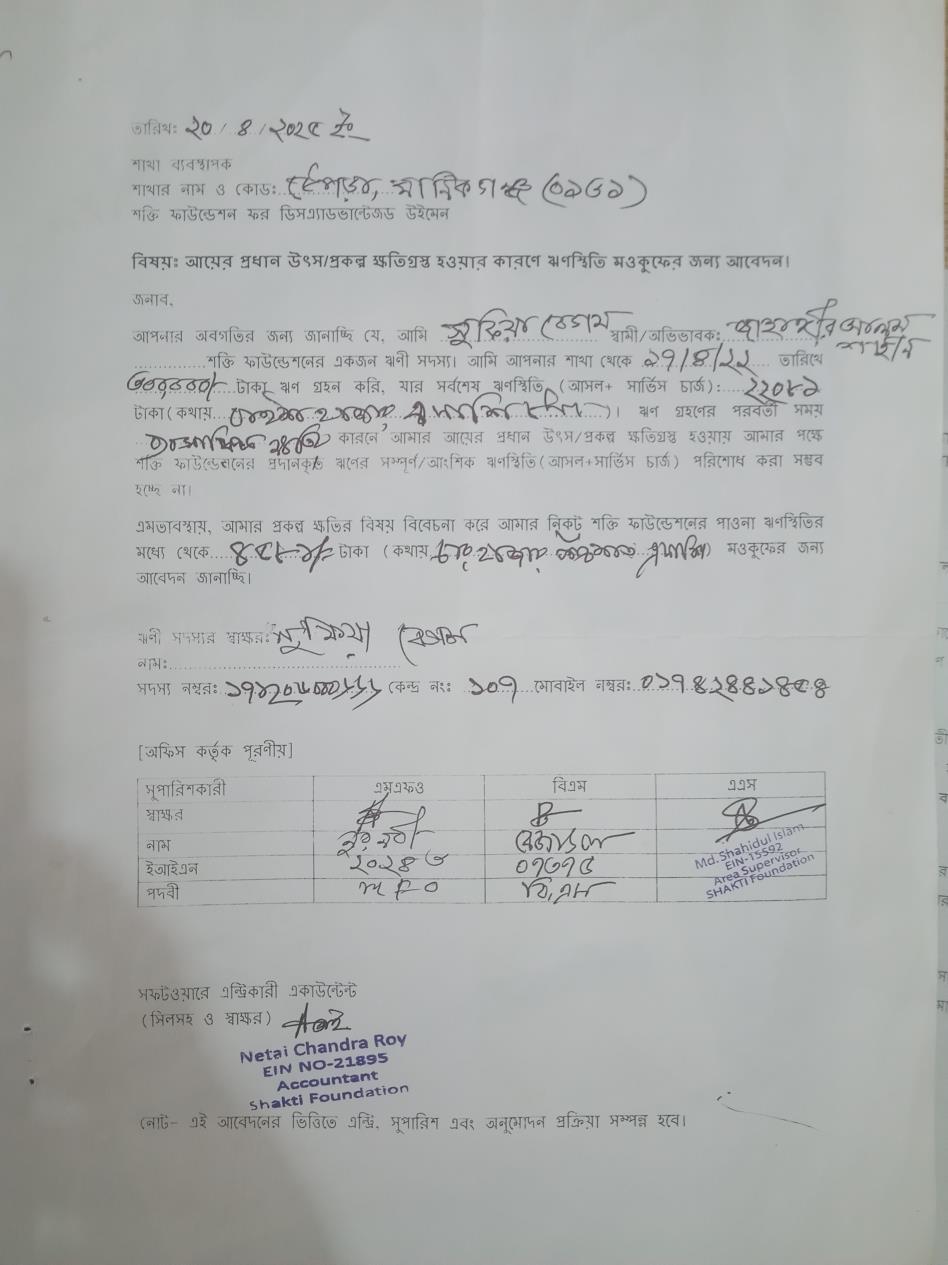 তারিখ: ২০/৪/২০২৫ ইং
শাখা ব্যবস্থাপক
শাখার নাম ও কোড: মানিকগঞ্জ (০১৩১)
শক্তি ফাউন্ডেশন ফর ডিসএ্যাডভান্টেজড উইমেন
বিষয়: আয়ের প্রধান উৎস/প্রকল্প ক্ষতিগ্রস্থ হওয়ার কারণে ঋণস্থিতি মওকুফের জন্য আবেদন।
জনাব,
আপনার অবগতির জন্য জানাচ্ছি যে, আমি সুফিয়া বেগম স্বামী/অভিভাবক: জাহাঙ্গীর আলম
শক্তি ফাউন্ডেশনের একজন ঋণী সদস্য। আমি আপনার শাখা থেকে ১৭/৪/২২ তারিখে
টাকা ঋণ গ্রহন করি, যার সর্বশেষ ঋণস্থিতি (আসল+ সার্ভিস চার্জ): ২২০৮১
টাকা (কথায় বাইশ হাজার একাশি)। ঋণ গ্রহণের পরবর্তী সময়
কারনে আমার আয়ের প্রধান উৎস/প্রকল্প ক্ষতিগ্রস্থ হওয়ায় আমার পক্ষে
শক্তি ফাউন্ডেশনের প্রদানকৃত ঋণের সম্পূর্ণ/আংশিক ঋণস্থিতি (আসল+সার্ভিস চার্জ) পরিশোধ করা সম্ভব
হচ্ছে না।
এমতাবস্থায়, আমার প্রকল্প ক্ষতির বিষয় বিবেচনা করে আমার নিকট শক্তি ফাউন্ডেশনের পাওনা ঋণস্থিতির
মধ্যে থেকে ৪৫৮১/- টাকা (কথায় চার হাজার পাঁচশত একাশি) মওকুফের জন্য
আবেদন জানাচ্ছি।
ঋণী সদস্যর স্বাক্ষর: সুফিয়া বেগম
নাম:
সদস্য নম্বর: কেন্দ্র নং: ১০৭ মোবাইল নম্বর: ০১৭৪২৪৪১৪৫৪
[অফিস কর্তৃক পূরণীয়]
সুপারিশকারী এমএফও বিএম এএস
স্বাক্ষর
নাম নুর নবী
Md. Shahidul Islam
ইআইএন ২০২৪৩ ০৭৩৭৫
EIN-15592
Area Supervisor
পদবী MFO বি,এম
SHAKTI Foundation
সফটওয়ারে এন্ট্রিকারী একাউন্টেন্ট
(সিলসহ ও স্বাক্ষর)
Netai Chandra Roy
EIN NO-21895
Accountant
Shakti Foundation
নোট- এই আবেদনের ভিত্তিতে এন্ট্রি, সুপারিশ এবং অনুমোদন প্রক্রিয়া সম্পন্ন হবে।